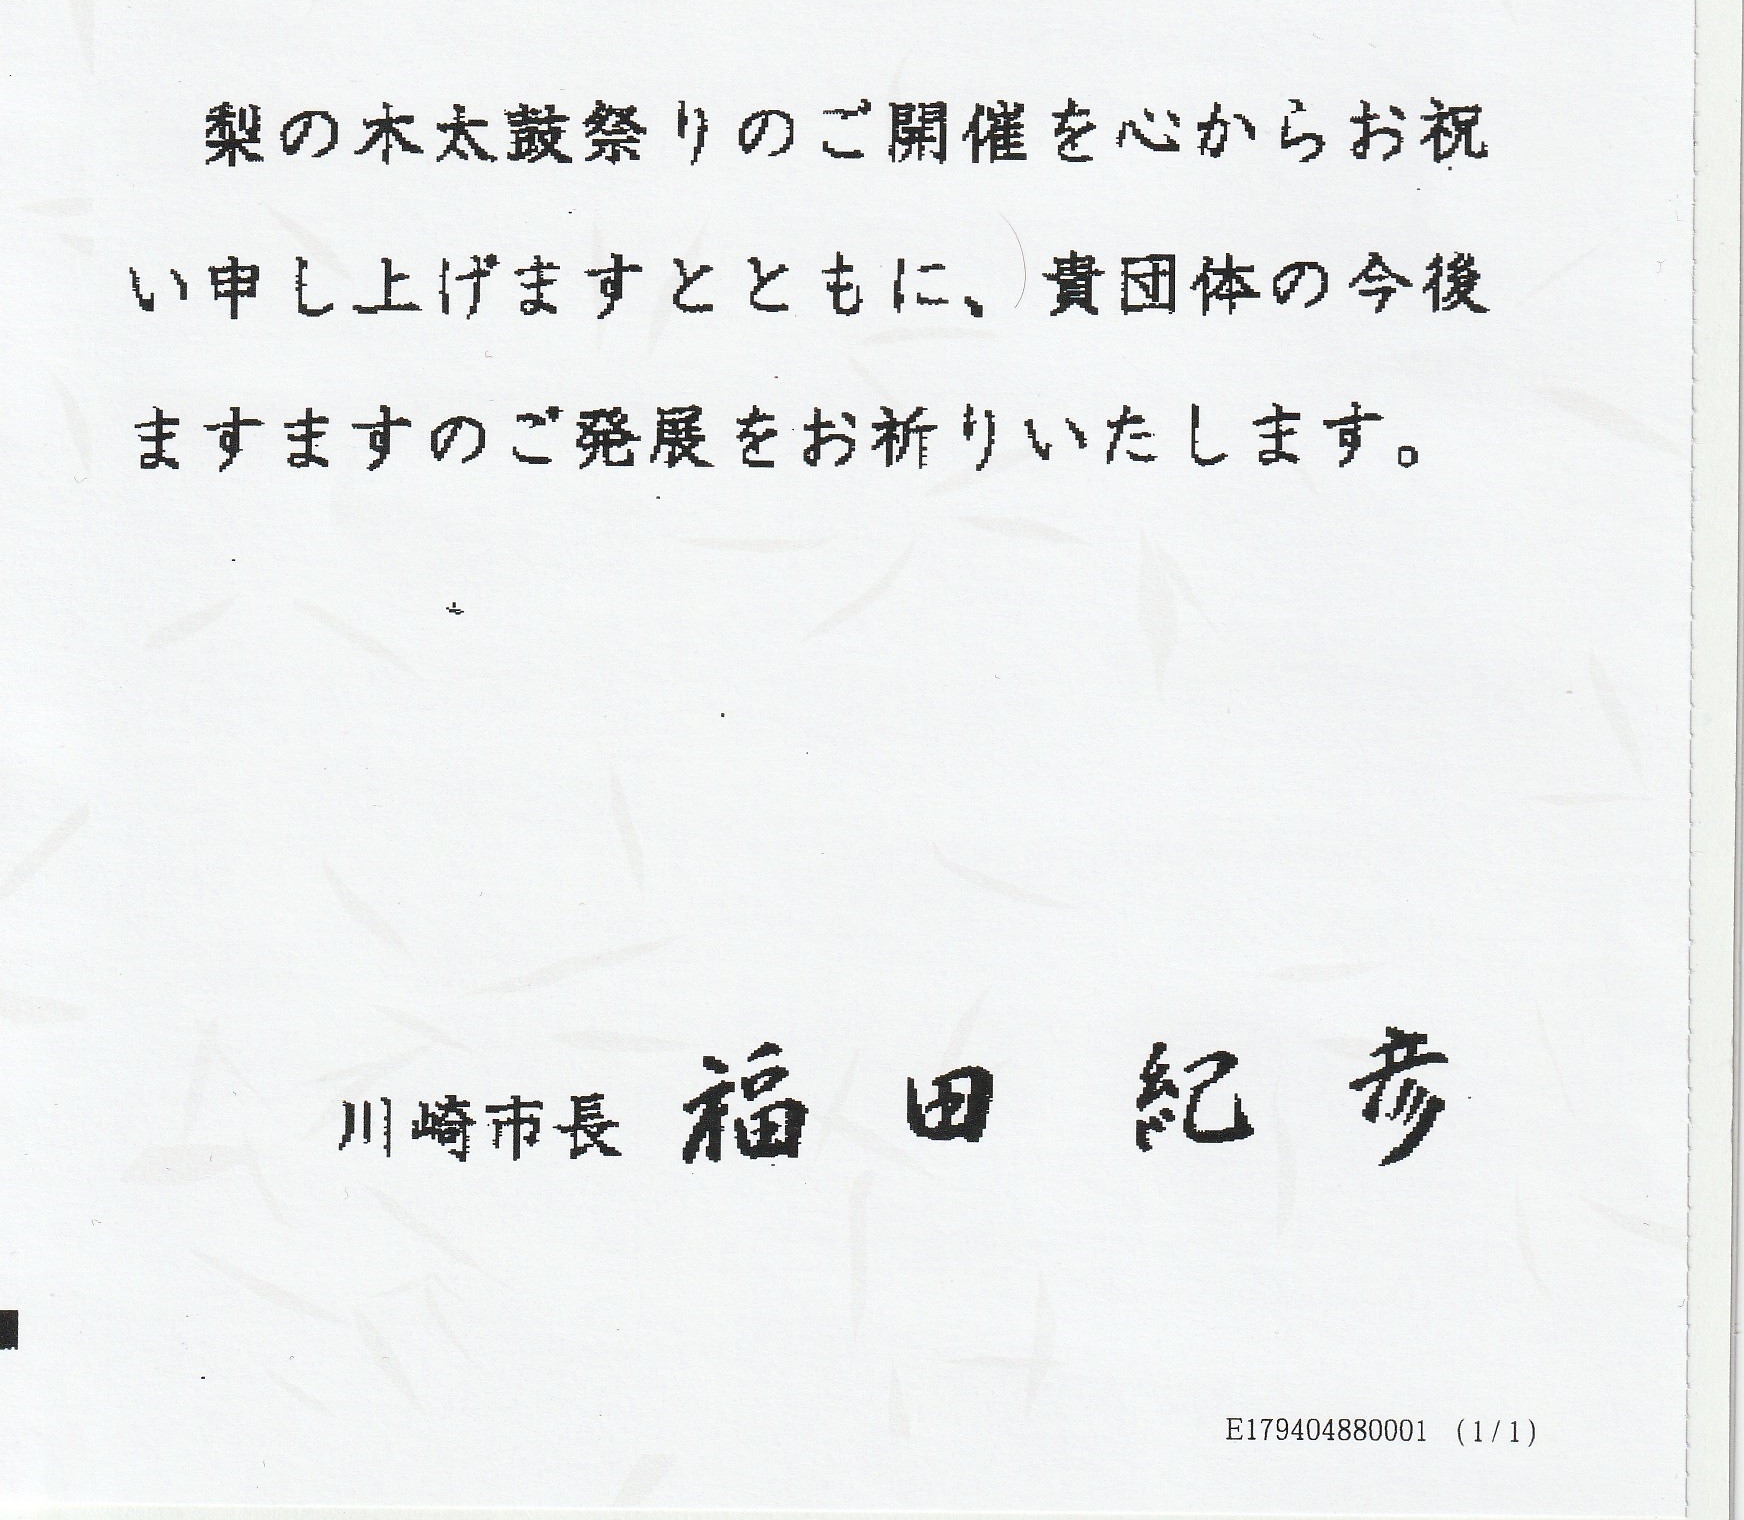 梨の木太鼓祭りのご開催を心からお祝
い申し上げますとともに、貴団体の今後
ますますのご発展をお祈りいたします。
川崎市長 福田紀彦
E179404880001 (1/1)